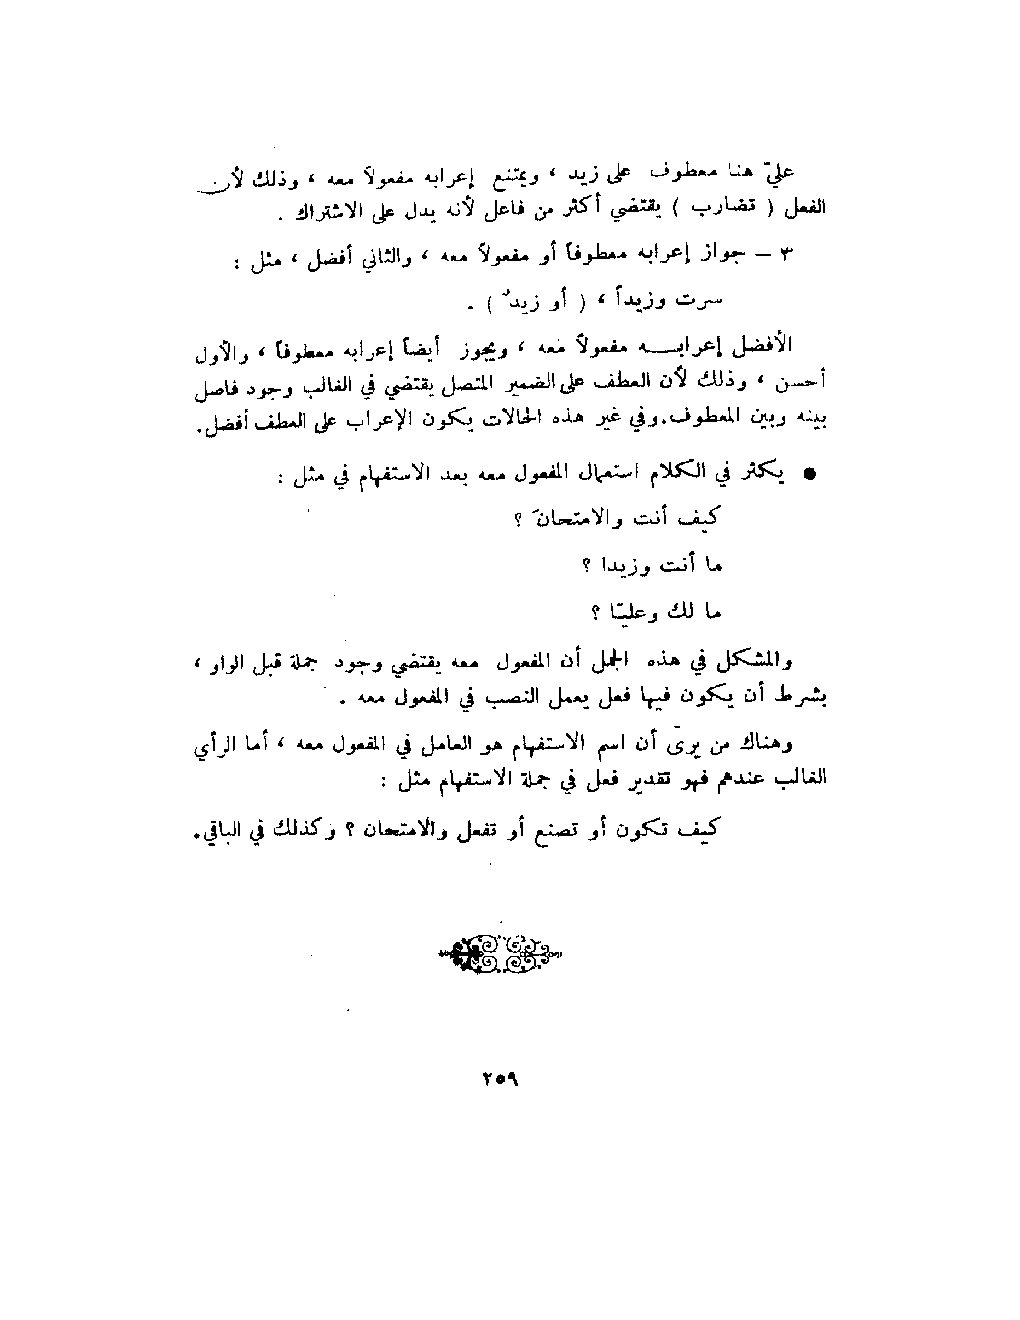 عليّ هنا معطوف على زيد ، ويمتنع إعرابه مفعولاً معه ، وذلك لأن
الفعل ( تضارب ) يقتضي أكثر من فاعل لأنه يدل على الاشتراك .
٣ – جواز إعرابه معطوفاً أو مفعولاً معه ، والثاني أفضل ، مثل :
سرت وزيداً ، ( أو زيدٌ ) .
الأفضل إعرابـــه مفعولاً معه ، ويجوز أيضاً إعرابه معطوفاً ، والأول
أحسن ، وذلك لأن العطف على الضمير المتصل يقتضي في الغالب وجود فاصل
بينه وبين المعطوف. وفي غير هذه الحالات يكون الإعراب على العطف أفضل.
● يكثر في الكلام استعمال المفعول معه بعد الاستفهام في مثل :
كيف أنت والامتحانَ ؟
ما أنت وزيدا ؟
ما لك وعليّا ؟
والمشكل في هذه الجمل أن المفعول معه يقتضي وجود جملة قبل الواو ،
بشرط أن يكون فيها فعل يعمل النصب في المفعول معه .
وهناك من يرى أن اسم الاستفهام هو العامل في المفعول معه ، أما الرأي
الغالب عندهم فهو تقدير فعل في جملة الاستفهام مثل :
كيف تكون أو تصنع أو تفعل والامتحان ؟ وكذلك في الباقي.
٢٥٩